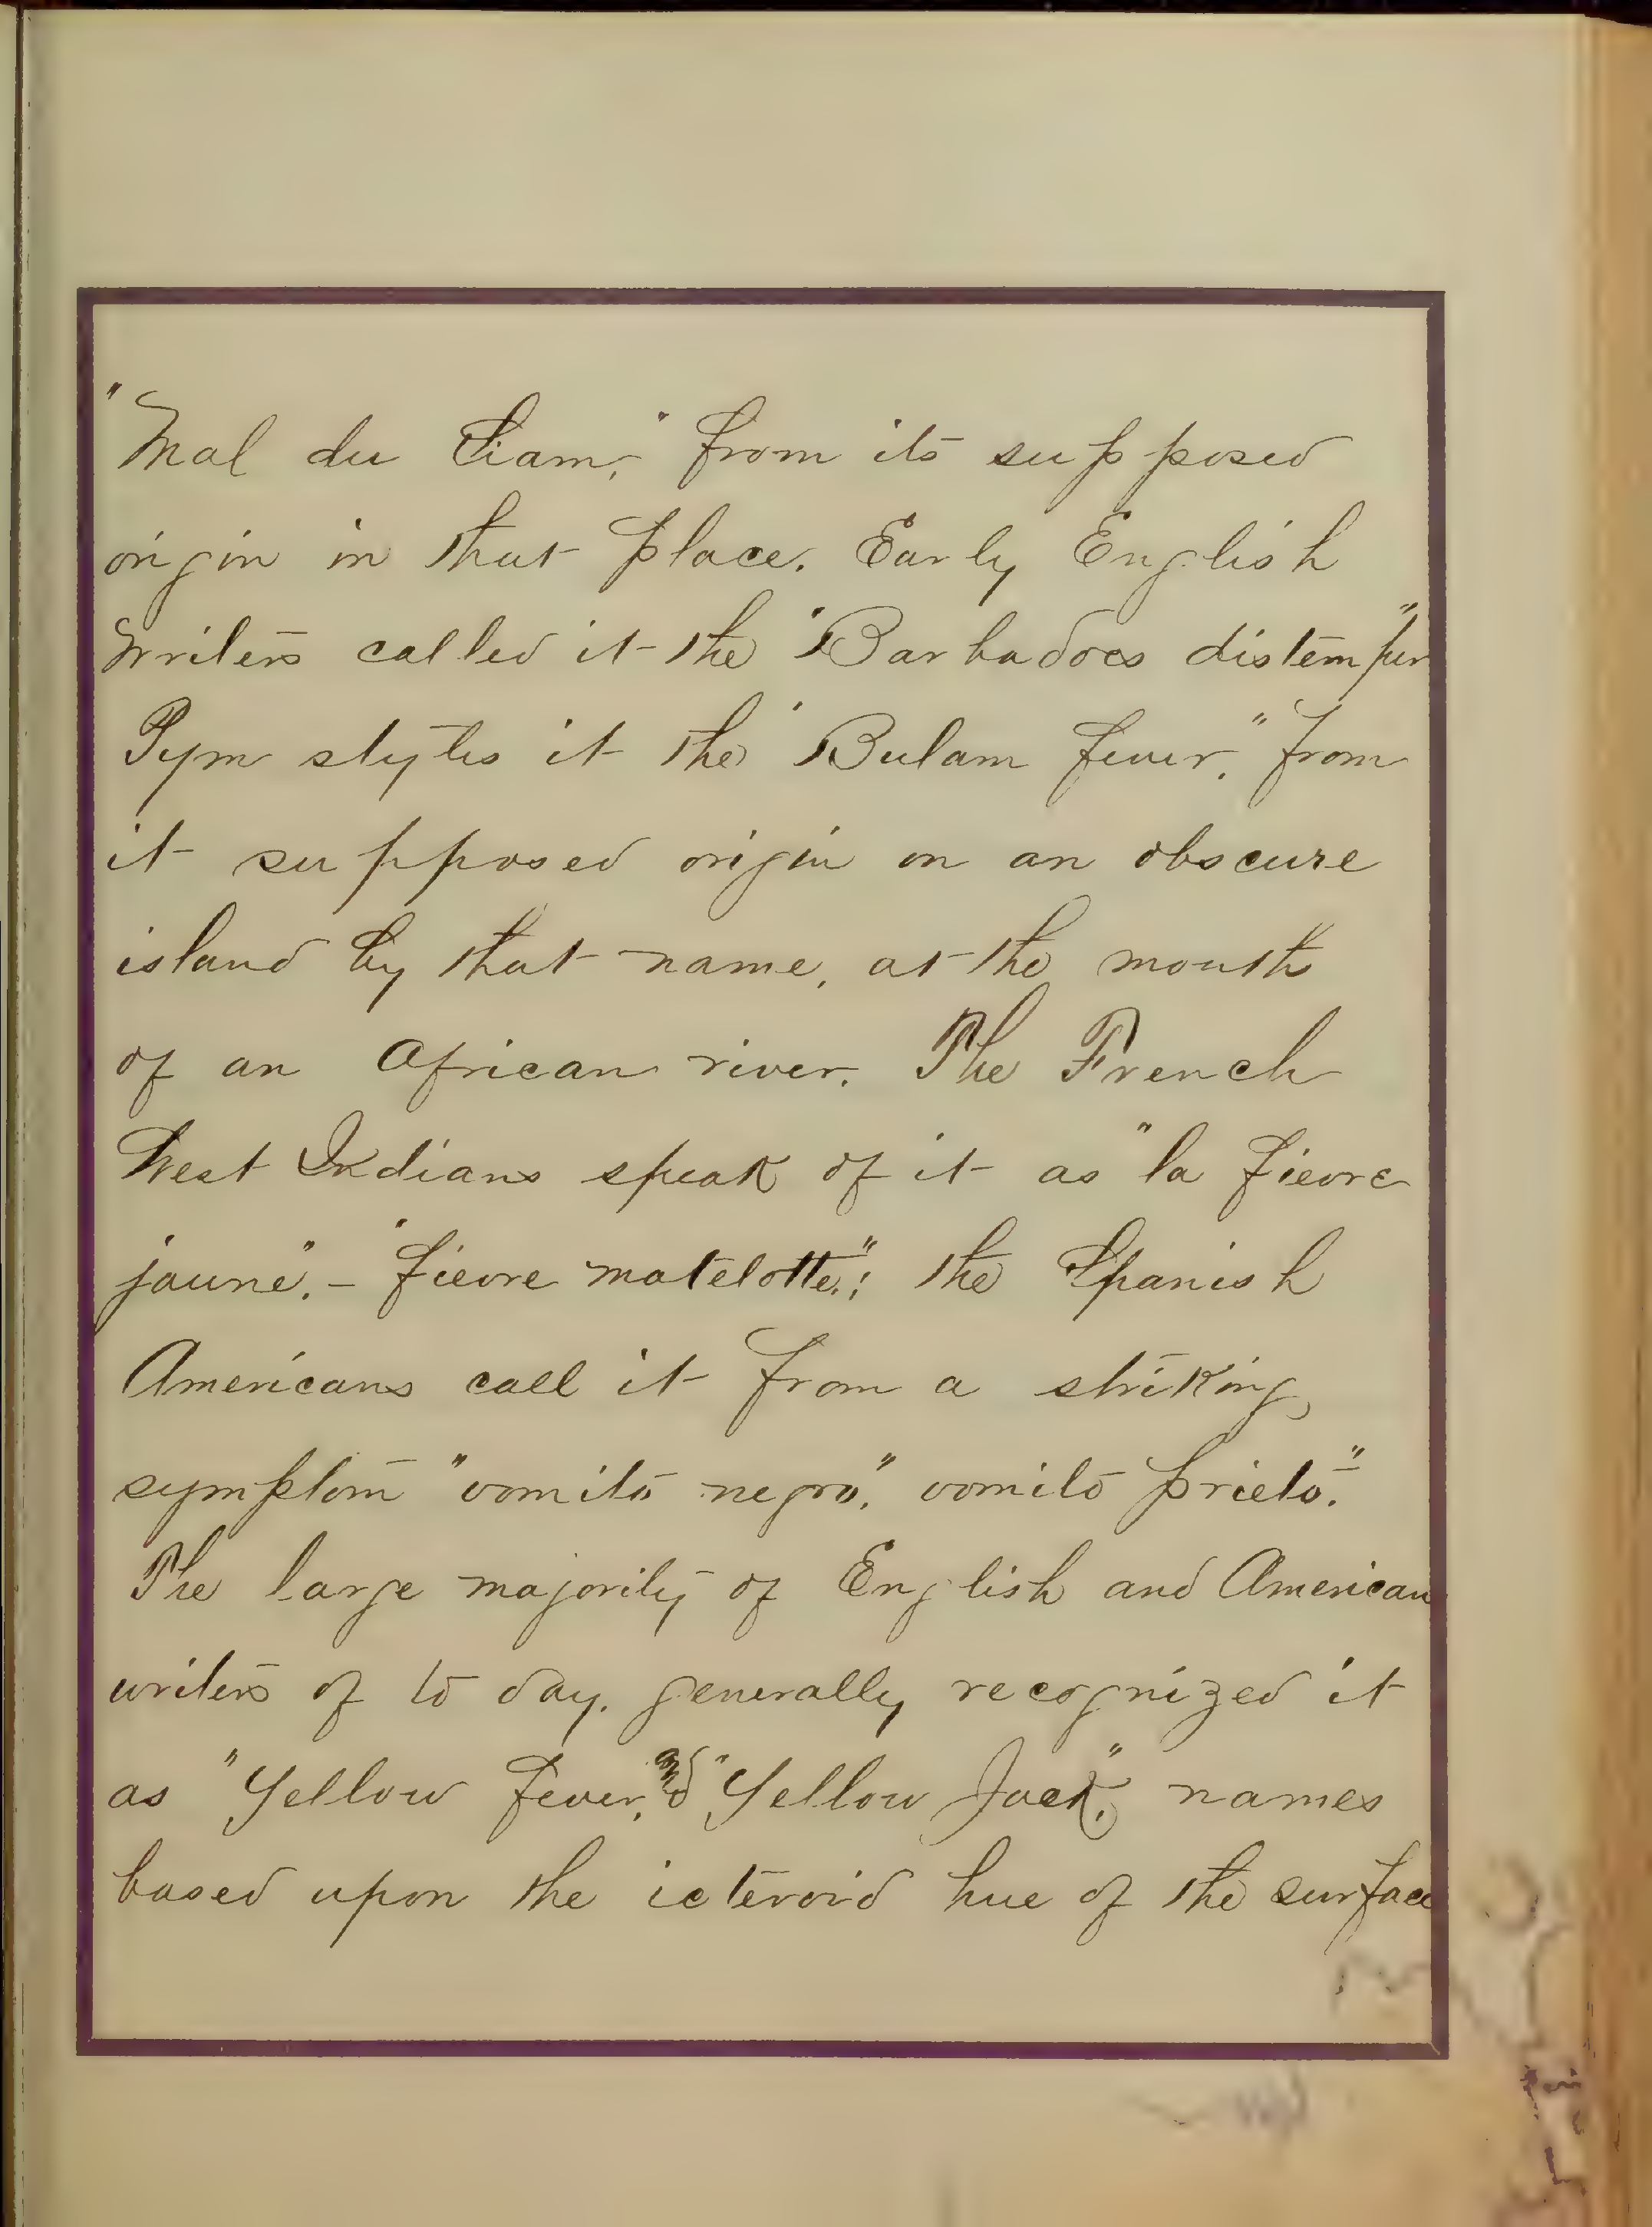 "Mal du Siam," from its supposed
origin in that place. Early English
writers called it the "Barbadoes distemper"
Pym styles it the "Bulam fever," from
it supposed origin on an obscure
island by that name, at the mouth
of an African river. The French
West Indians speak of it as "la fievre
jaune". - "fievre matelotte"; the Spanish
Americans call it from a striking
symptom "vomito negro", vomito prieto".
The large majority of English and American
writers of to day. generally recognized it
as "Yellow Fever, and "Yellow Jack", names
based upon the icteroid hue of the surface